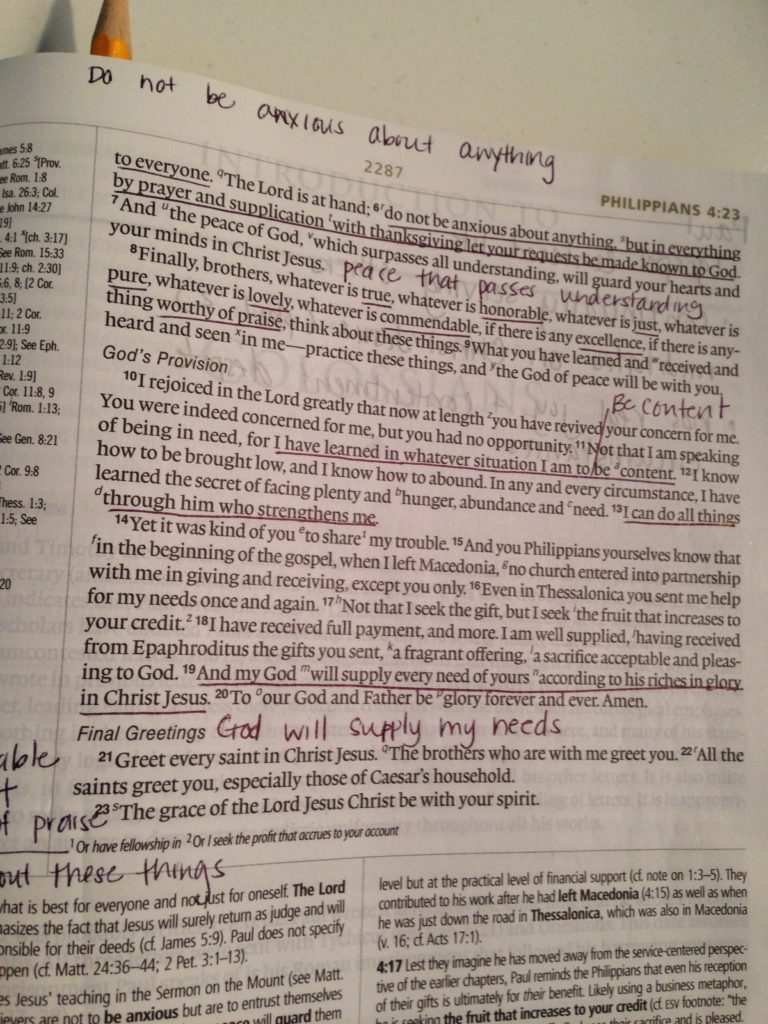 Do not be anxious about anything
2287
PHILIPPIANS 4:23
to everyone. qThe Lord is at hand; 6 rdo not be anxious about anything, sbut in everything
by prayer and supplication twith thanksgiving let your requests be made known to God.
7 And uthe peace of God, vwhich surpasses all understanding, will guard your hearts and
your minds in Christ Jesus. peace that passes understanding
8 Finally, brothers, whatever is true, whatever is honorable, whatever is just, whatever is
pure, whatever is lovely, whatever is commendable, if there is any excellence, if there is any-
thing worthy of praise, think about these things. 9 What you have learned and wreceived and
heard and seen xin me—practice these things, and ythe God of peace will be with you.
God's Provision
Be content
10 I rejoiced in the Lord greatly that now at length zyou have revived your concern for me.
You were indeed concerned for me, but you had no opportunity. 11 Not that I am speaking
of being in need, for I have learned in whatever situation I am to be acontent. 12 I know
how to be brought low, and I know how to abound. In any and every circumstance, I have
learned the secret of facing plenty and bhunger, abundance and cneed. 13 I can do all things
dthrough him who strengthens me.
14 Yet it was kind of you eto share1 my trouble. 15 And you Philippians yourselves know that
fin the beginning of the gospel, when I left Macedonia, gno church entered into partnership
with me in giving and receiving, except you only. 16 Even in Thessalonica you sent me help
for my needs once and again. 17 hNot that I seek the gift, but I seek ithe fruit that increases to
your credit.2 18 I have received full payment, and more. I am well supplied, jhaving received
from Epaphroditus the gifts you sent, ka fragrant offering, la sacrifice acceptable and pleas-
ing to God. 19 And my God mwill supply every need of yours naccording to his riches in glory
in Christ Jesus. 20 To oour God and Father be pglory forever and ever. Amen.
Final Greetings God will supply my needs
21 Greet every saint in Christ Jesus. qThe brothers who are with me greet you. 22 rAll the
saints greet you, especially those of Caesar's household.
23 sThe grace of the Lord Jesus Christ be with your spirit.
1 Or have fellowship in 2 Or I seek the profit that accrues to your account
ames 5:8
att. 6:25 s[Prov.
ee Rom. 1:8
Isa. 26:3; Col.
e John 14:27
19]
4:1 [ch. 3:17]
See Rom. 15:33
11:9; ch. 2:30]
:6, 8; [2 Cor.
3:5]
11; 2 Cor.
or. 11:9
2:9]; See Eph.
1:12
Rev. 1:9]
Cor. 11:8, 9
Rom. 1:13;
See Gen. 8:21
Cor. 9:8
Thess. 1:3;
1:5; See
20
able
t
of praise
out these things
what is best for everyone and not just for oneself. The Lord
hasizes the fact that Jesus will surely return as judge and will
onsible for their deeds (cf. James 5:9). Paul does not specify
ppen (cf. Matt. 24:36–44; 2 Pet. 3:1–13).
es Jesus' teaching in the Sermon on the Mount (see Matt.
ievers are not to be anxious but are to entrust themselves
will guard them
level but at the practical level of financial support (cf. note on 1:3–5). They
contributed to his work after he had left Macedonia (4:15) as well as when
he was just down the road in Thessalonica, which was also in Macedonia
(v. 16; cf. Acts 17:1).
4:17 Lest they imagine he has moved away from the service-centered perspec-
tive of the earlier chapters, Paul reminds the Philippians that even his reception
of their gifts is ultimately for their benefit. Likely using a business metaphor,
he is seeking the fruit that increases to your credit (cf. ESV footnote: "the
their sacrifice and is pleased.